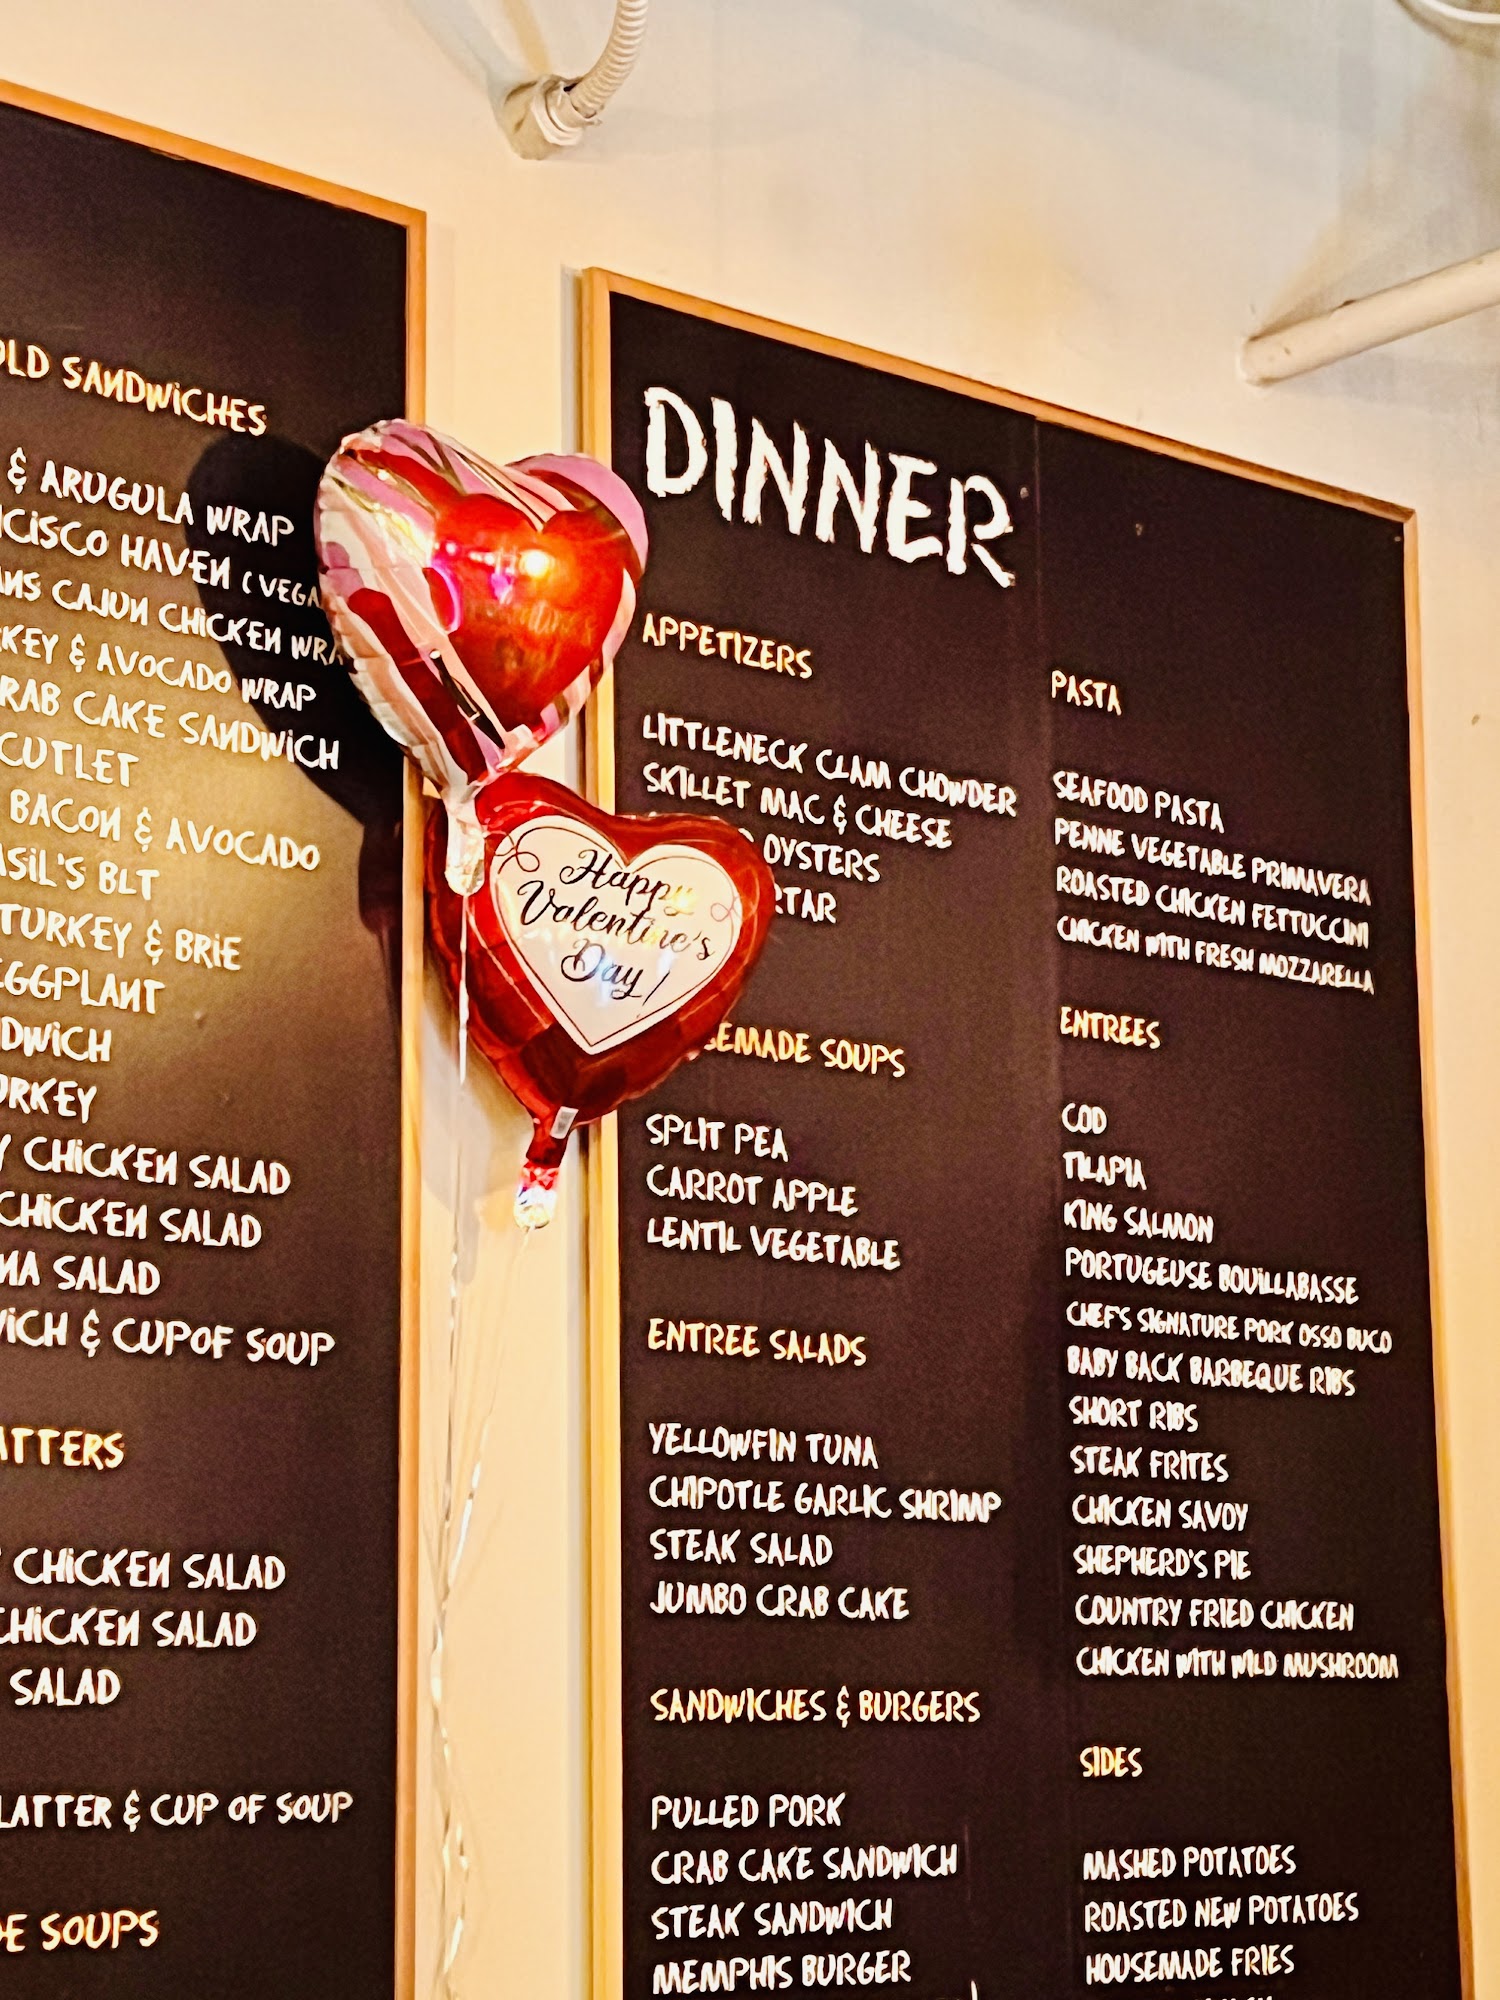 OLD SANDWICHES
& ARUGULA WRAP
CISCO HAVEN (VEGA
ANS CAJUN CHICKEN WRA
KEY & AVOCADO WRAP
RAB CAKE SANDWICH
CUTLET
BACON & AVOCADO
ASIL'S BLT
TURKEY & BRIE
EGGPLANT
DWICH
URKEY
Y CHICKEN SALAD
CHICKEN SALAD
NA SALAD
WICH & CUPOF SOUP
ATTERS
CHICKEN SALAD
CHICKEN SALAD
SALAD
LATTER & CUP OF SOUP
DE SOUPS
Happy
Valentine's
Day!
DINNER
APPETIZERS
LITTLENECK CLAM CHOWDER
SKILLET MAC & CHEESE
OYSTERS
RTAR
SEMADE SOUPS
SPLIT PEA
CARROT APPLE
LENTIL VEGETABLE
ENTREE SALADS
YELLOWFIN TUNA
CHIPOTLE GARLIC SHRIMP
STEAK SALAD
JUMBO CRAB CAKE
SANDWICHES & BURGERS
PULLED PORK
CRAB CAKE SANDWICH
STEAK SANDWICH
MEMPHIS BURGER
PASTA
SEAFOOD PASTA
PENNE VEGETABLE PRIMAVERA
ROASTED CHICKEN FETTUCCINI
CHICKEN WITH FRESH MOZZARELLA
ENTREES
COD
TILAPIA
KING SALMON
PORTUGEUSE BOUILLABASSE
CHEF'S SIGNATURE PORK OSSO BUCO
BABY BACK BARBEQUE RIBS
SHORT RIBS
STEAK FRITES
CHICKEN SAVOY
SHEPHERD'S PIE
COUNTRY FRIED CHICKEN
CHICKEN WITH WILD MUSHROOM
SIDES
MASHED POTATOES
ROASTED NEW POTATOES
HOUSEMADE FRIES